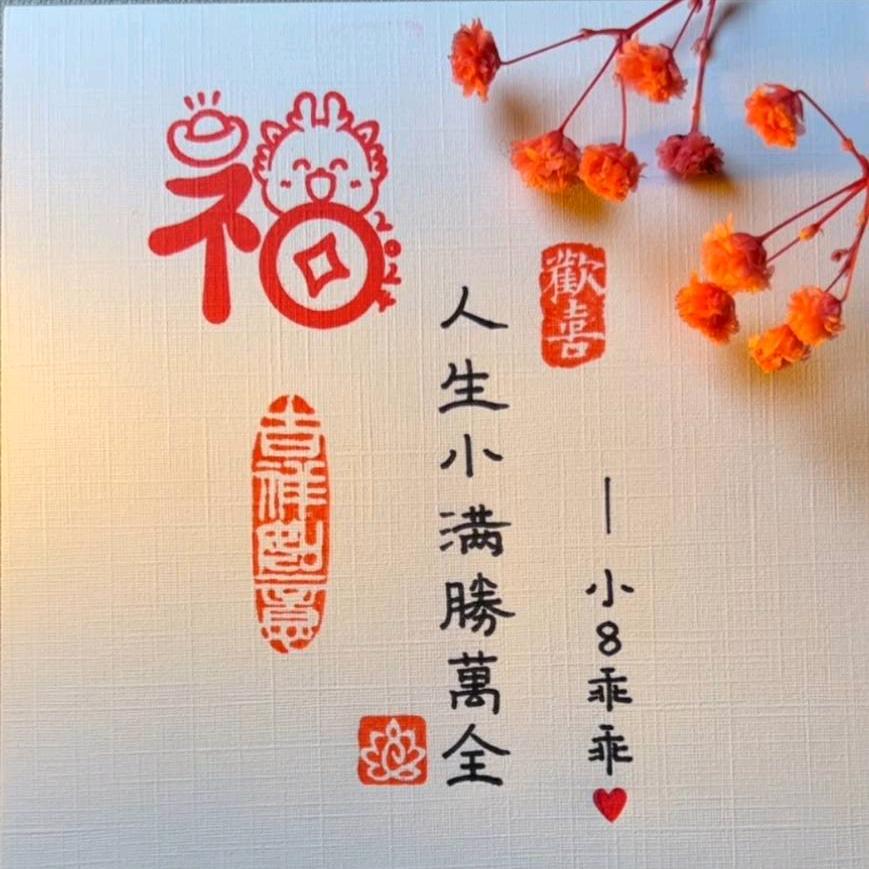 福
2024
歡喜
人生小满勝萬全
—小8乖乖
吉祥如意